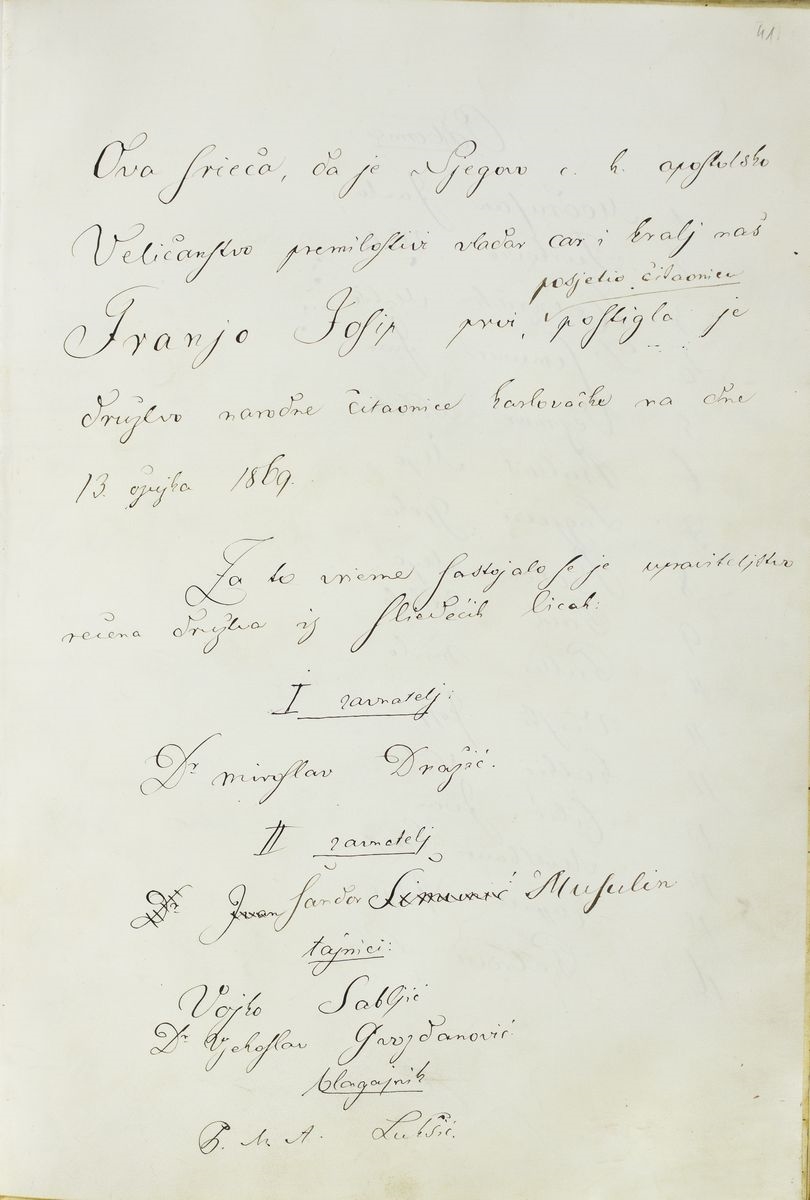 41.
Ova srieća, da je Njegovo c. k. apostolsko
Veličanstvo premilostivi vladar car i kralj naš
posjetio čitaonicu
Franjo Josip prvi, postigla je
družtvo narodne čitaonice karlovačke na dne
13. ožujka 1869.
Za to vrieme sastojalo se je upraviteljstvo
rečena družtva iz sliedećih licah:
I ravnatelj:
Dr Miroslav Dražić.
II ravnatelj
Dr Ivan Šandor Šimunić Musulin
tajnici:
Vojko Sabljić
Dr Vjekoslav Gvozdanović
blagajnik
P. M. A. Lukšić.